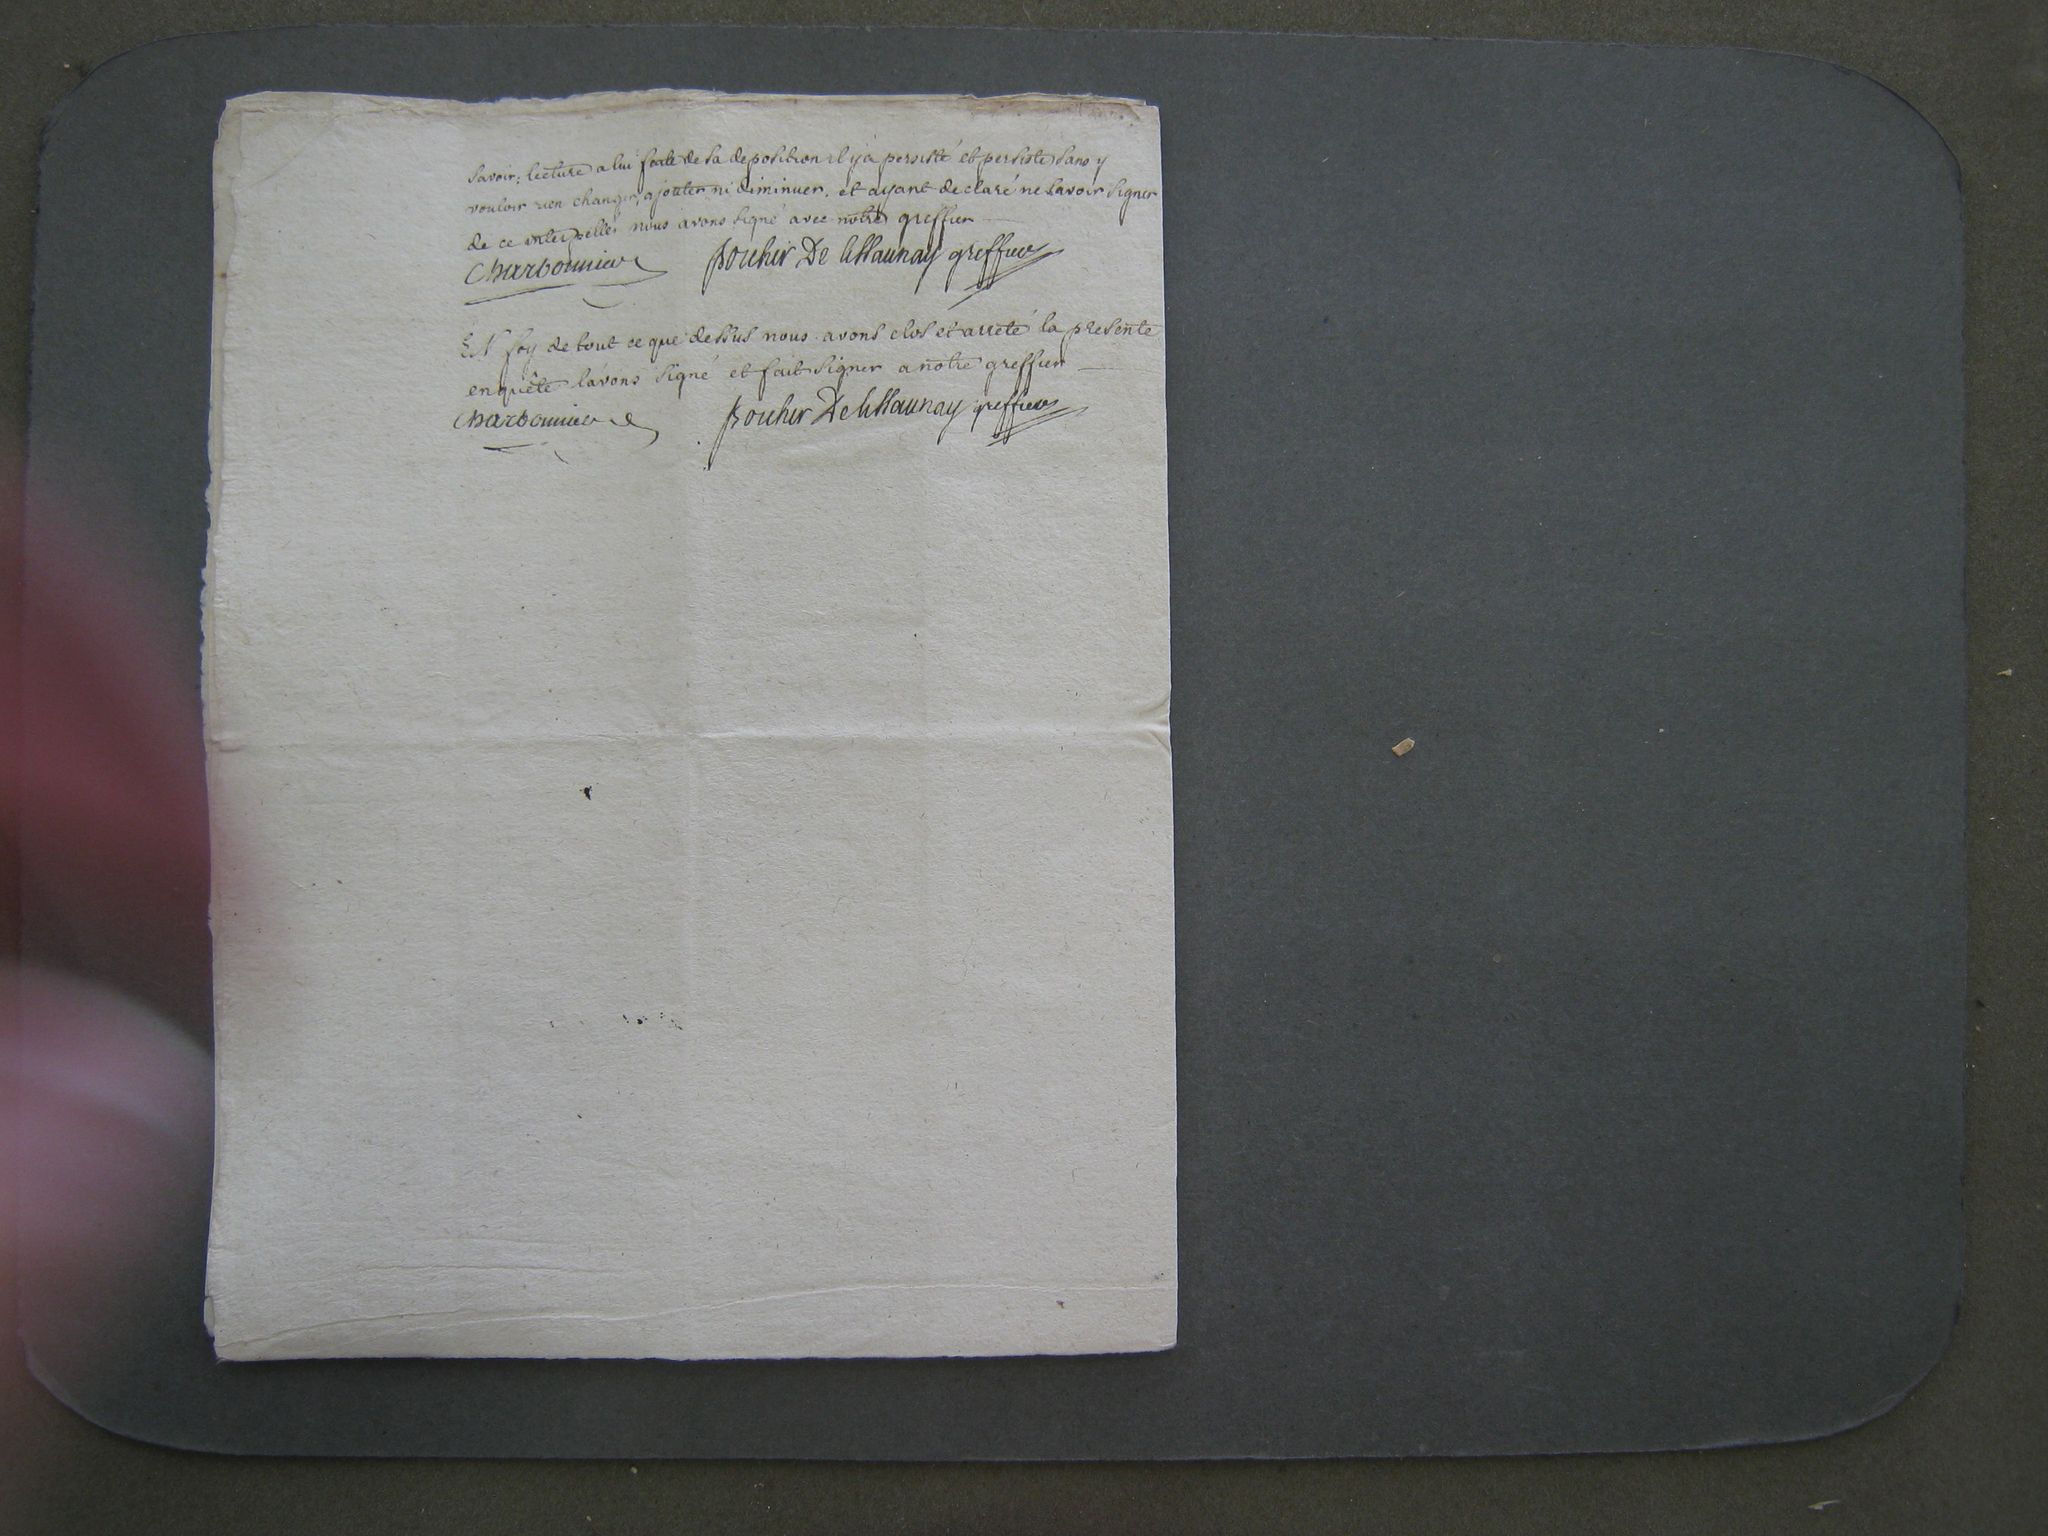 Savoir; lecture a lui faite de sa deposition il y a persisté et persiste sans y
vouloir rien changer, ajouter ni diminuer. et ayant declaré ne savoir signer
de ce interpellé, nous avons signé avec notre greffier
Charbonnier Boucher De greffier
EN foy de tout ce que dessus nous avons clos et arreté la presente
enquête lavons signé et fait signer a notre greffier
Charbonnier Boucher De greffier